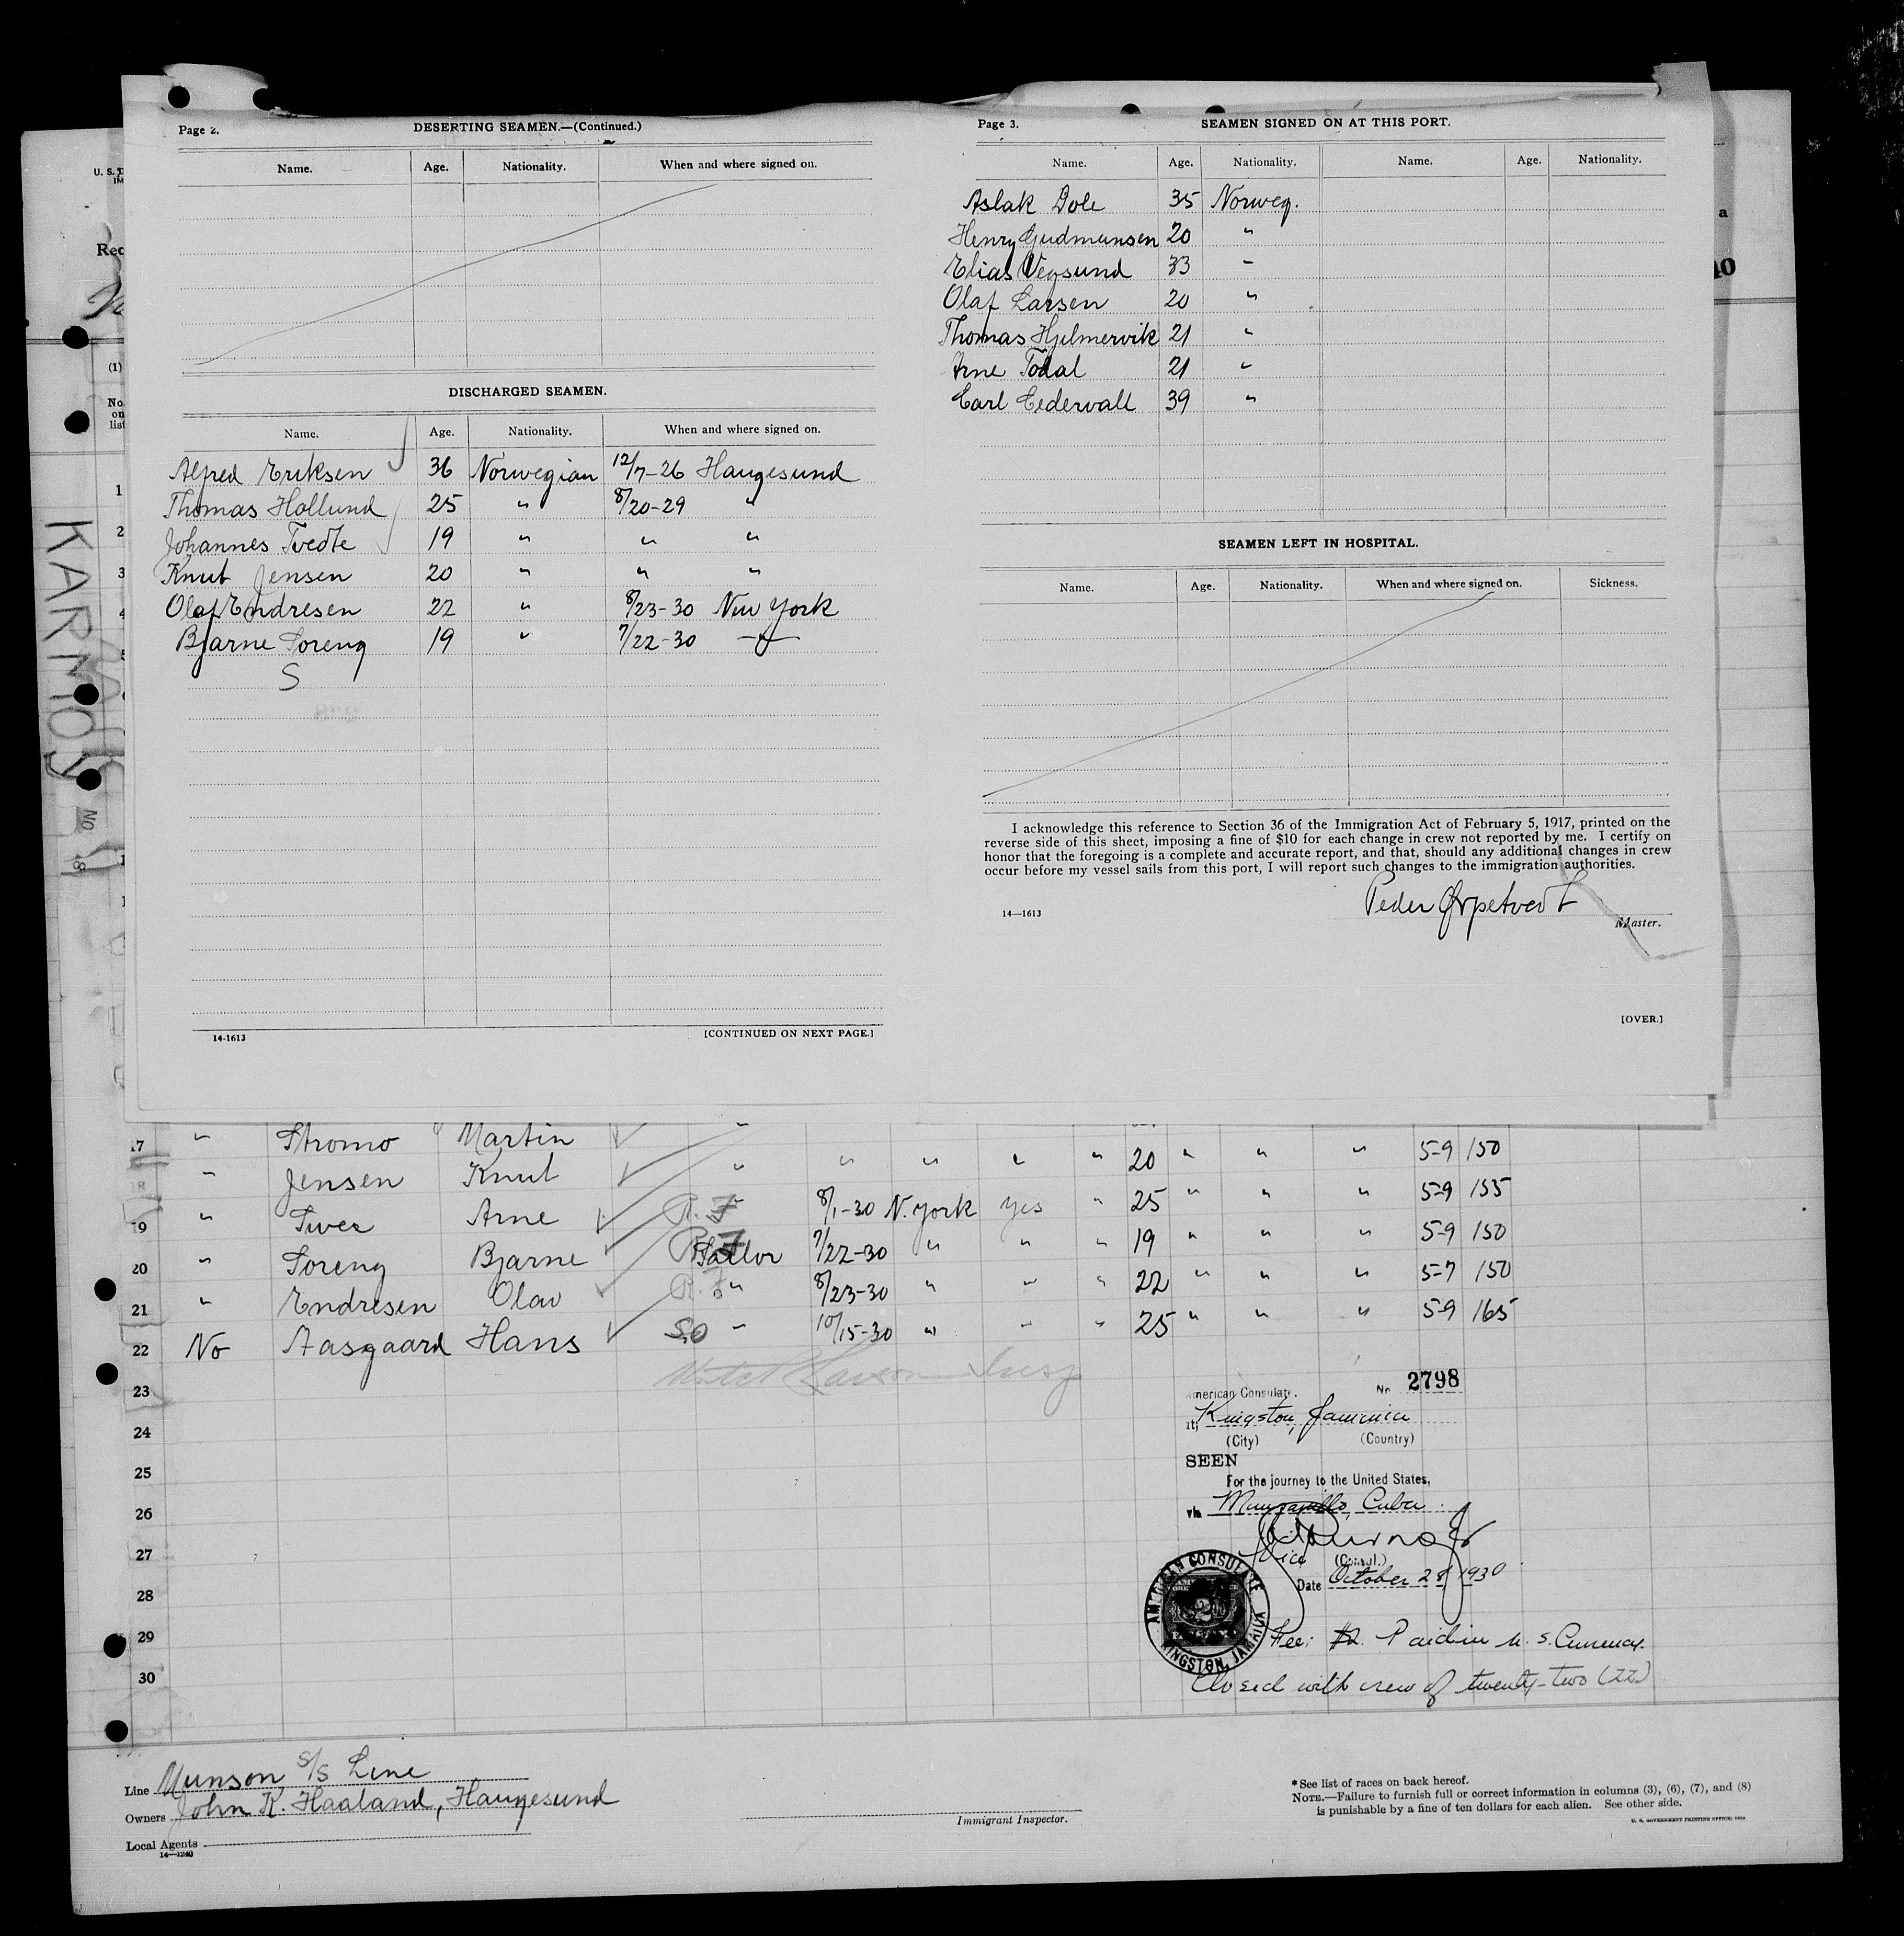 Page 2.
DESERTING SEAMEN.—(Continued.)
Name. Age. Nationality. When and where signed on.
DISCHARGED SEAMEN.
Name. Age. Nationality. When and where signed on.
Alfred Eriksen 36 Norwegian 12/7-26 Haugesund
Thomas Hollund 25 " 8/20-29 "
Johannes Tvedte 19 " " "
Knut Jensen 20 " " "
Olaf Endresen 22 " 8/23-30 New York
Bjarne Soreng 19 " 7/22-30 —"—
S
14-1613 [CONTINUED ON NEXT PAGE.]
Page 3.
SEAMEN SIGNED ON AT THIS PORT.
Name. Age. Nationality. Name. Age. Nationality.
Aslak Dole 35 Norweg.
Henry Gudmunsen 20 "
Elias Vegsund 33 "
Olaf Larsen 20 "
Thomas Hjelmervik 21 "
Arne Todal 21 "
Carl Cedervall 39 "
SEAMEN LEFT IN HOSPITAL.
Name. Age. Nationality. When and where signed on. Sickness.
I acknowledge this reference to Section 36 of the Immigration Act of February 5, 1917, printed on the
reverse side of this sheet, imposing a fine of $10 for each change in crew not reported by me. I certify on
honor that the foregoing is a complete and accurate report, and that, should any additional changes in crew
occur before my vessel sails from this port, I will report such changes to the immigration authorities.
Peder Ørpetvedt
14—1613 Master.
[OVER.]
U. S. D
IM
Rec
(1)
No.
on
list
1
2
3
4
KARMOY
No
a
40
17 " Stromo Martin "
18 " Jensen Knut " " " " " 20 " " " 5-9 150
19 " Tver Arne R.F " 8/1-30 N. York Yes " 25 " " " 5-9 155
20 " Soreng Bjarne Sailor 7/22-30 " " " 19 " " " 5-9 150
21 " Endresen Olav " 8/23-30 " " " 22 " " " 5-7 150
22 No Aasgaard Hans S.O " 10/15-30 " " " 25 " " " 5-9 165
23
24
25
26
27
28
29
30
American Consulate. No. 2798
at, Kingston, Jamaica
(City) (Country)
SEEN
For the journey to the United States,
via Manzanillo, Cuba
Vice (Consul.)
Date October 28, 1930
AMERICAN CONSULATE
KINGSTON, JAMAICA
Fee: $2. Paid in U. S. Currency.
Closed with crew of twenty-two (22)
Line Munson S/S Line
Owners John K. Haaland, Haugesund
Local Agents
14—1240
Immigrant Inspector.
*See list of races on back hereof.
NOTE.—Failure to furnish full or correct information in columns (3), (6), (7), and (8)
is punishable by a fine of ten dollars for each alien. See other side.
U. S. GOVERNMENT PRINTING OFFICE: 1929